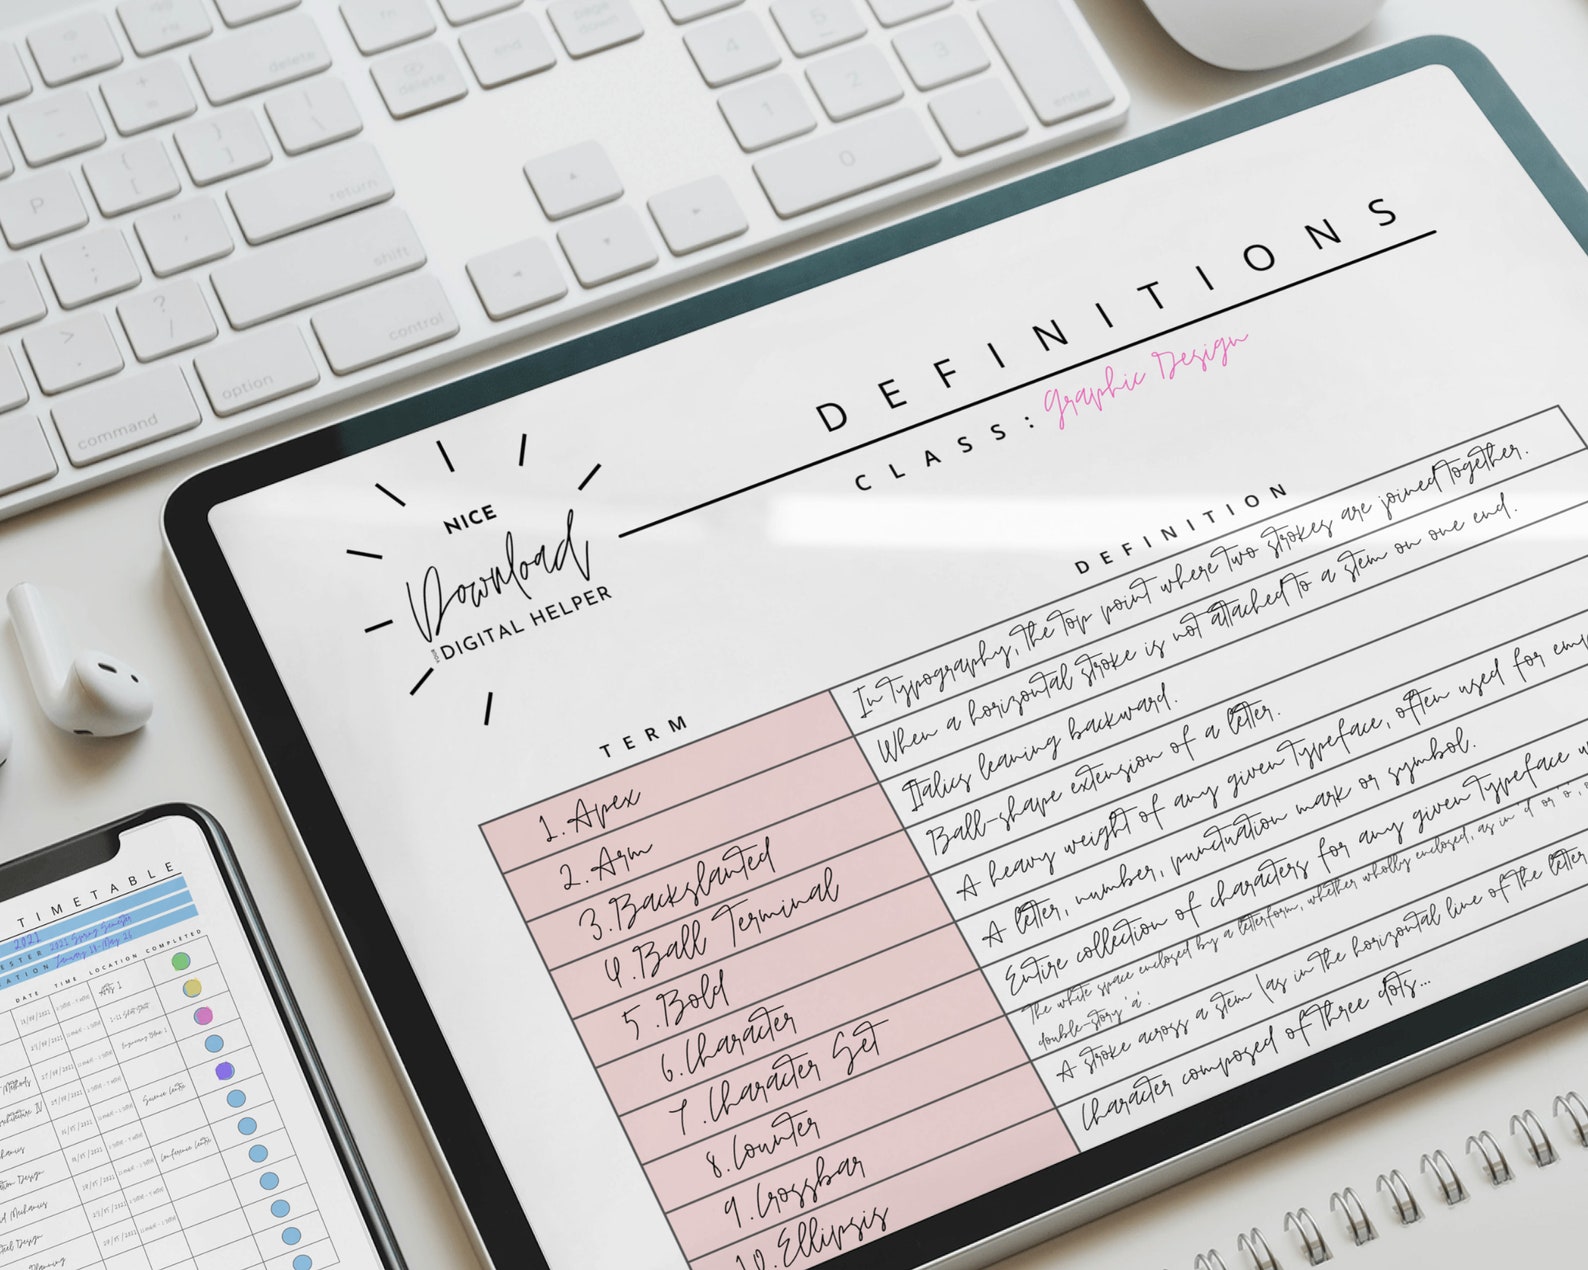 delete
delete
end
page down
return
shift
control
option
command
enter
P
4
5
1
2
3
0
DEFINITIONS
CLASS: Graphic Design
NICE
Download
DIGITAL HELPER
TERM
DEFINITION
1. Apex
In typography, the top point where two strokes are joined together.
2. Arm
When a horizontal stroke is not attached to a stem on one end.
3. Backslanted
Italics leaning backward.
4. Ball Terminal
Ball-shape extension of a letter.
5. Bold
A heavy weight of any given typeface, often used for emp
6. Character
A letter, number, punctuation mark or symbol.
7. Character Set
Entire collection of characters for any given typeface
8. Counter
The white space enclosed by a letterform, whether wholly enclosed, as in 'd' or 'o',
double-story 'a'.
9. Crossbar
A stroke across a stem (as in the horizontal line of the letter
10. Ellipsis
Character composed of three dots...
TIMETABLE
2021
ESTER 2021 Spring Semester
ATION January 11-May 28
DATE TIME LOCATION COMPLETED
Methods
Architecture IV
Science Centre
Conference Centre
Design
Mechanics
Design
Planning